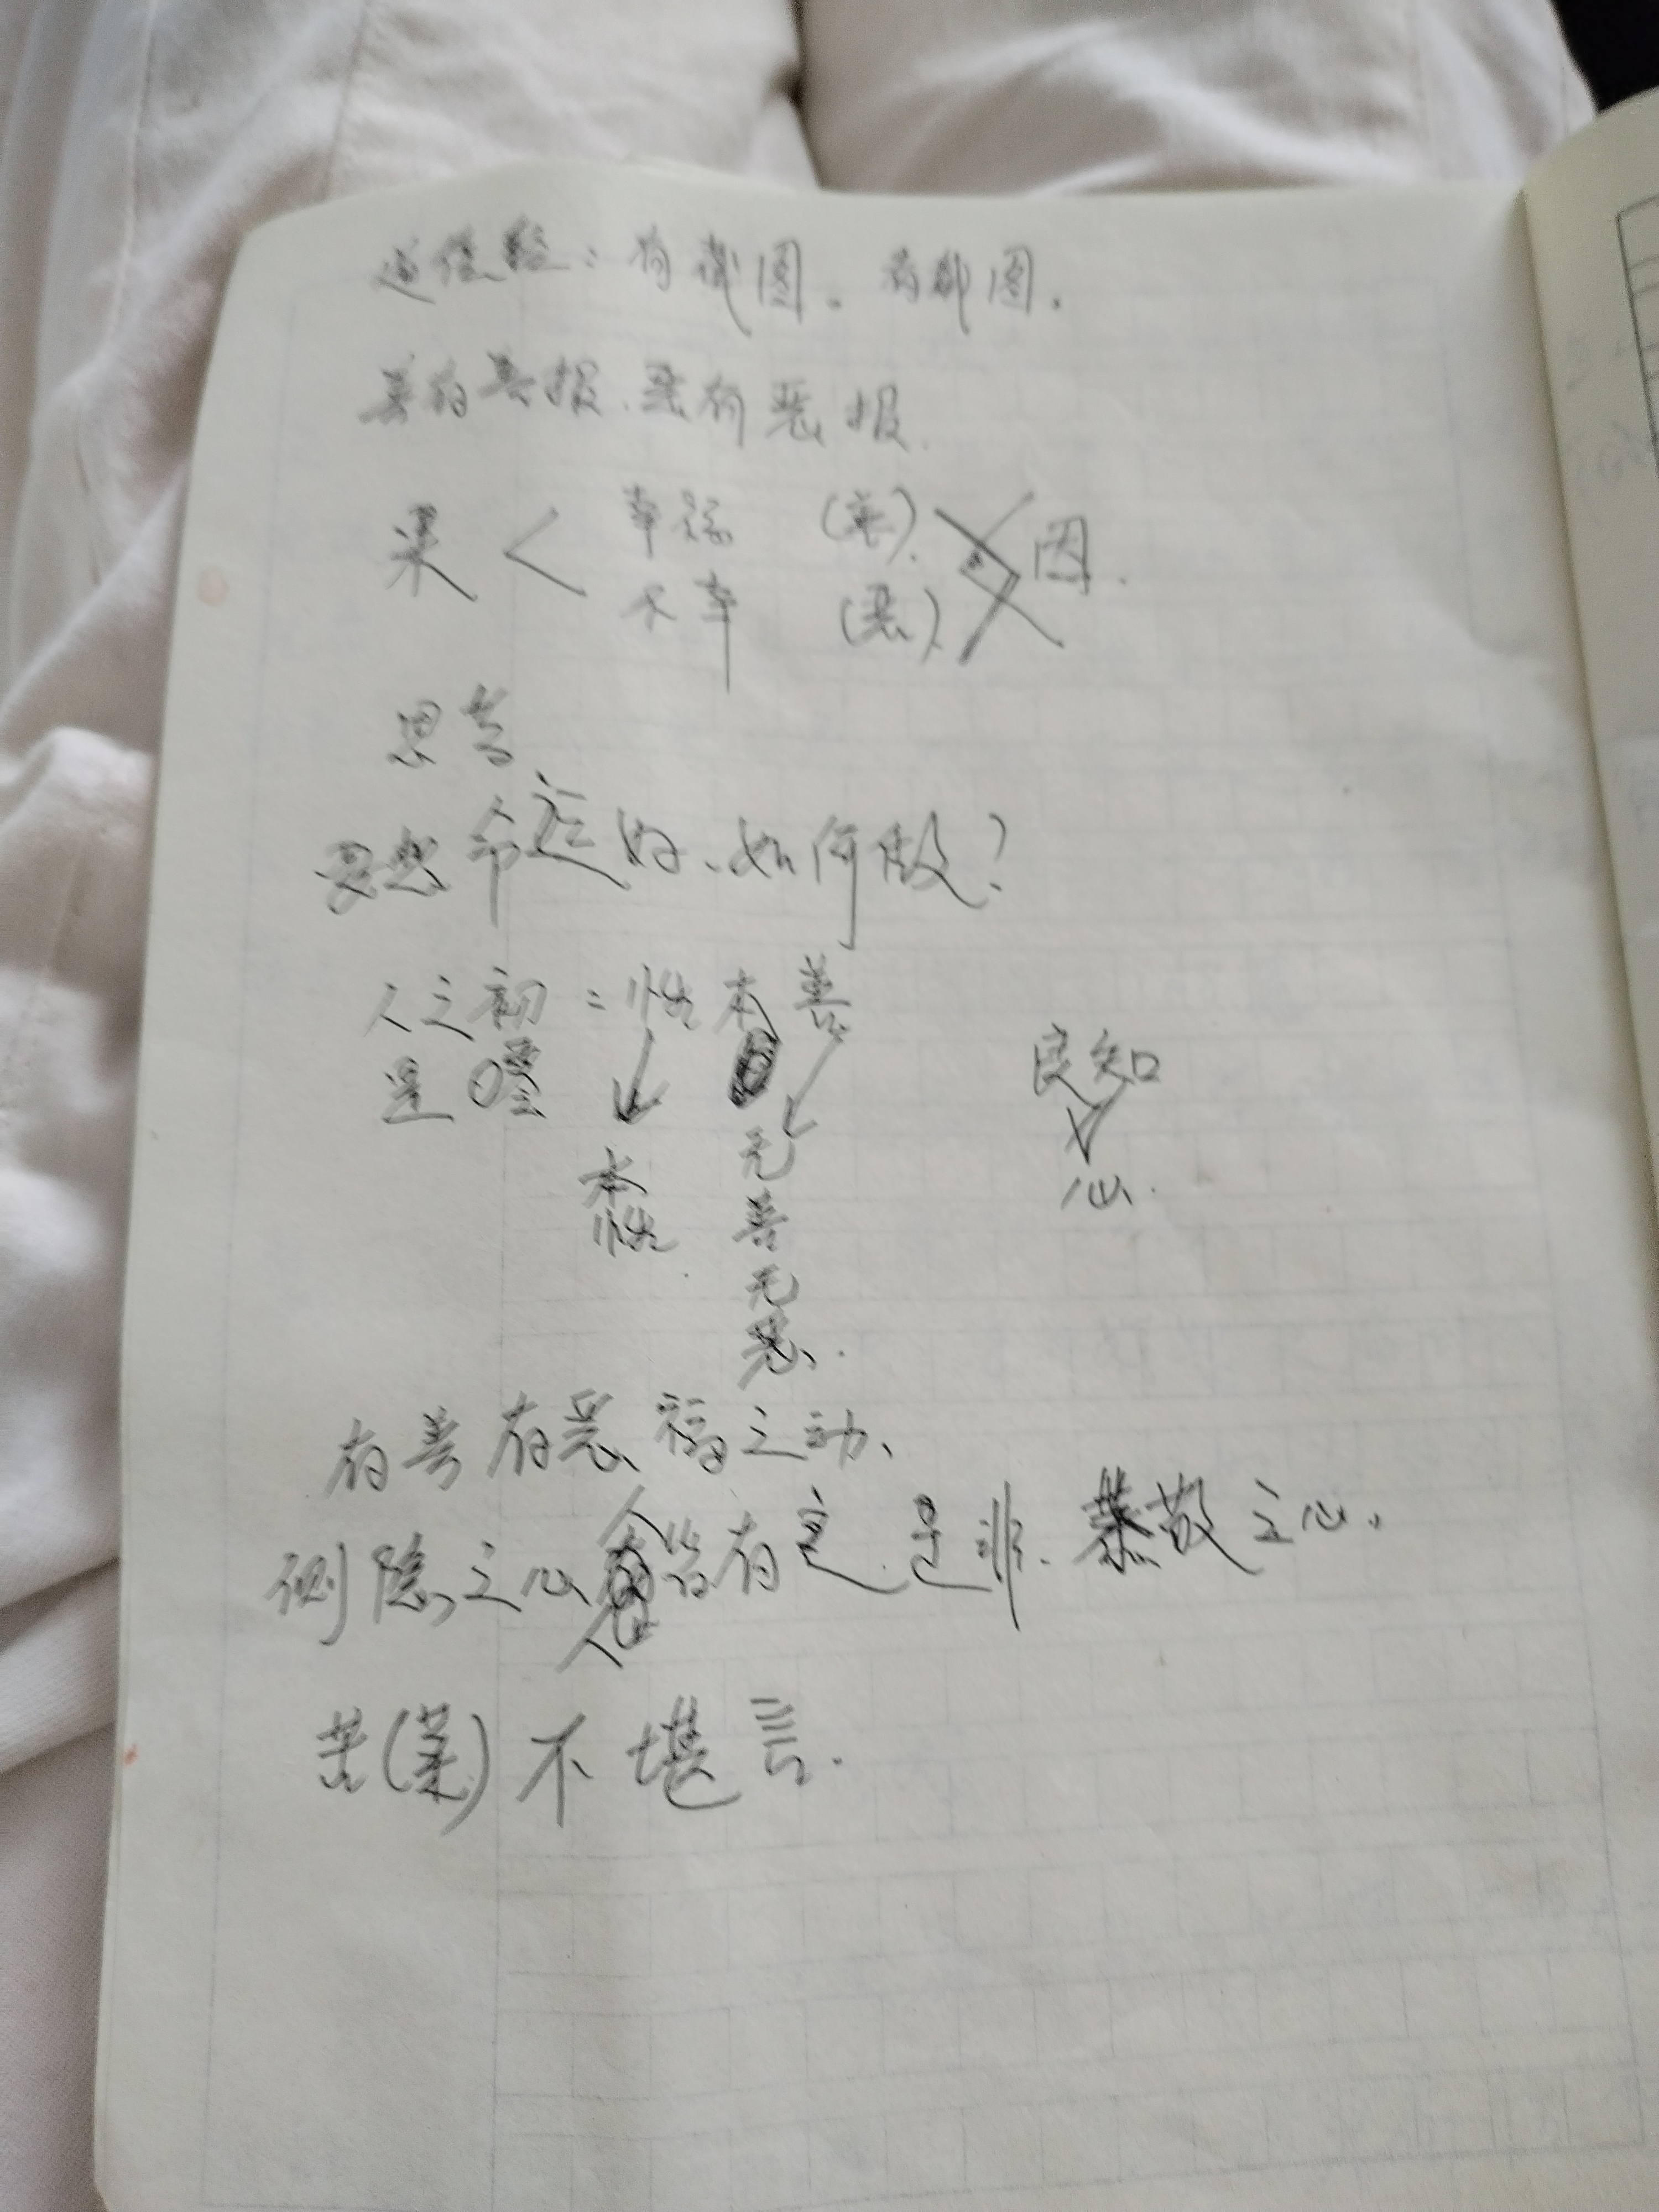 道德经：有截图。有截图。
善有善报.恶有恶报.
果 < 幸福 (善). 因.
不幸 (恶).
思考
要想命运好、如何做？
人之初：性本善
是 本性. 无善无恶. 良知 心.
有善有恶 之动、
恻隐之心人皆有之.是非.恭敬之心.
苦(菜)不堪言.